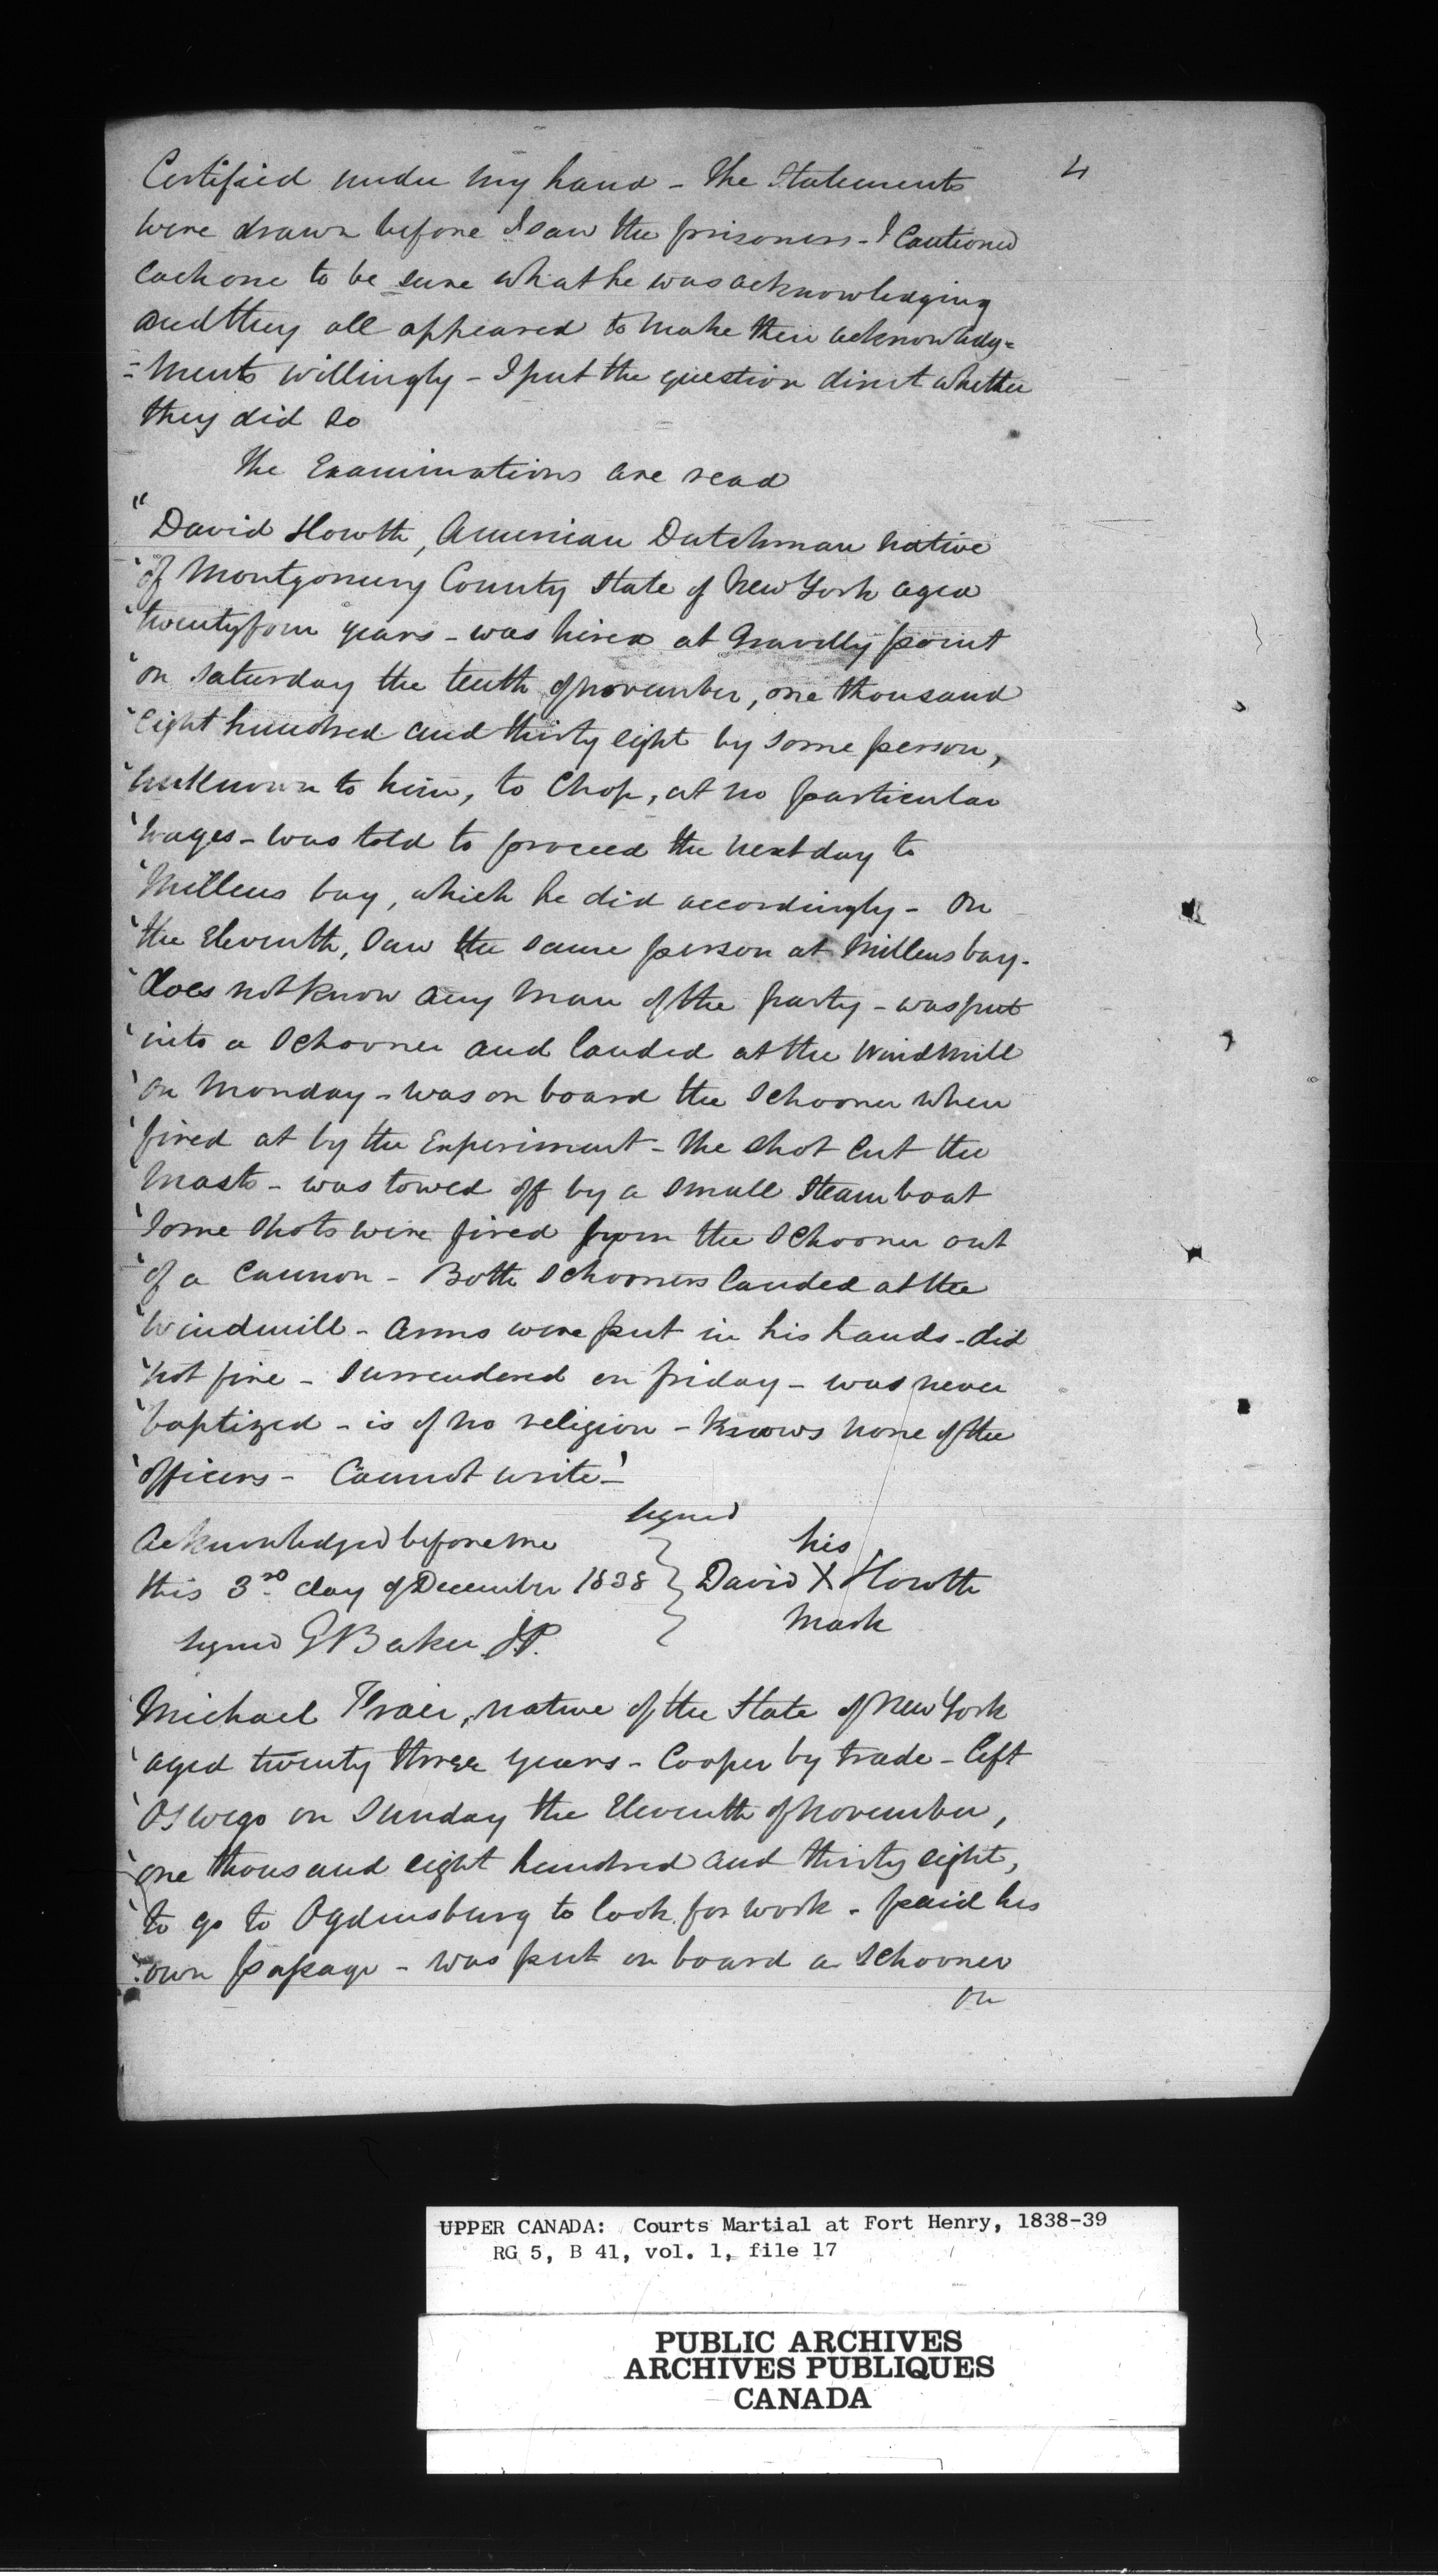 4
Certified under my hand - The Statements
were drawn before I saw the prisoners - I Cautioned
each one to be sure what he was acknowledging
and they all appeared to make their acknowledg=
=ments willingly - I put the question direct whether
they did so
The Examinations are read
"David Howth, American Dutchman native
'of Montgomery County State of New York aged
'twentyfour years - was hired at Gravelly point
'on Saturday the tenth of november, one thousand
'eight hundred and thirty eight by some person,
'unknown to him, to Chop, at no particular
'wages - was told to proceed the next day to
'Millens bay, which he did accordingly - On
'the Eleventh, saw the same person at Millens bay -
'does not know any man of the party - was put
'into a Schooner and landed at the Windmill
'on Monday - was on board the Schooner when
'fired at by the Experiment - The shot cut the
'mast - was towed off by a small Steam boat
'Some shots were fired from the Schooner out
'of a Cannon - Both Schooners landed at the
'Windmill - arms were put in his hands - did
'not fire - Surrendered on friday - was never
'baptized - is of no religion - Knows none of the
'officers - Cannot write -'
signed
Acknowledged before me
this 3rd day of December 1838 } David X Howth
his
mark
signed G Baker J.P.
'Michael Fraer, native of the State of New York
'aged twenty three years - Cooper by trade - left
'Oswego on Sunday the Eleventh of november,
'one thousand eight hundred and thirty eight,
'to go to Ogdensburg to look for work - paid his
'own passage - was put on board a Schooner
on
UPPER CANADA: Courts Martial at Fort Henry, 1838-39
RG 5, B 41, vol. 1, file 17
PUBLIC ARCHIVES
ARCHIVES PUBLIQUES
CANADA